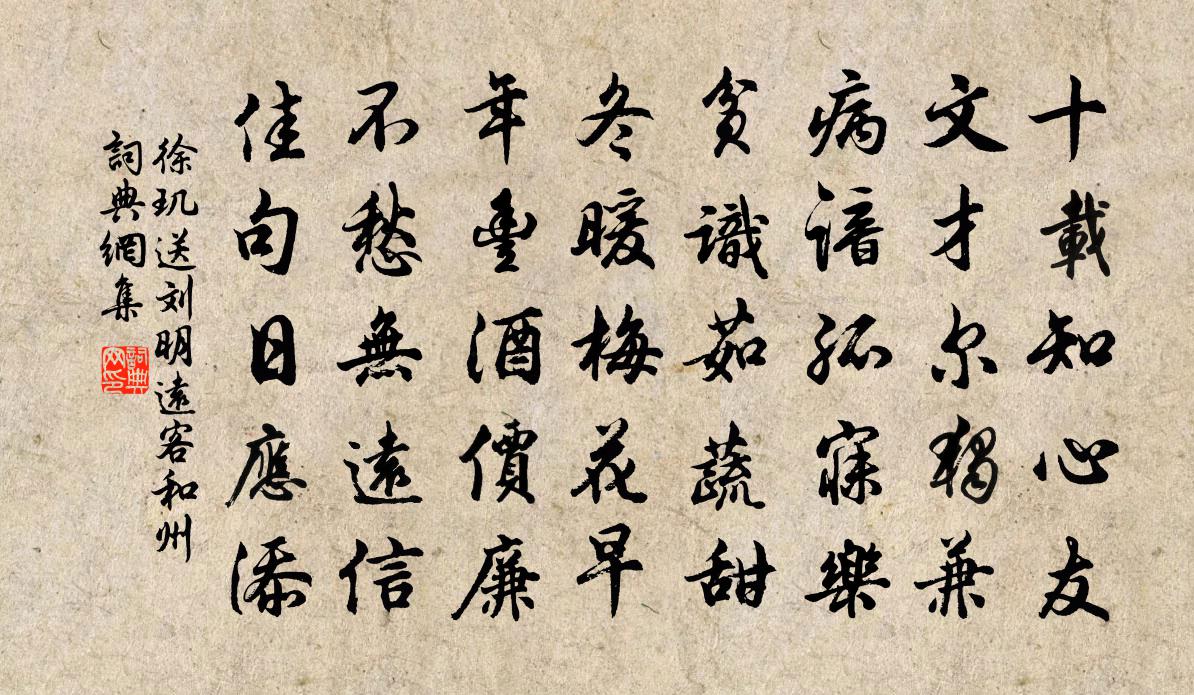 十載知心友
文才尔獨兼
病諳孤寐樂
貧識茹蔬甜
冬暖梅花早
年豐酒價廉
不愁無遠信
佳句日應添
徐玑送刘明遠客和州
詞典網集
詞典
网印